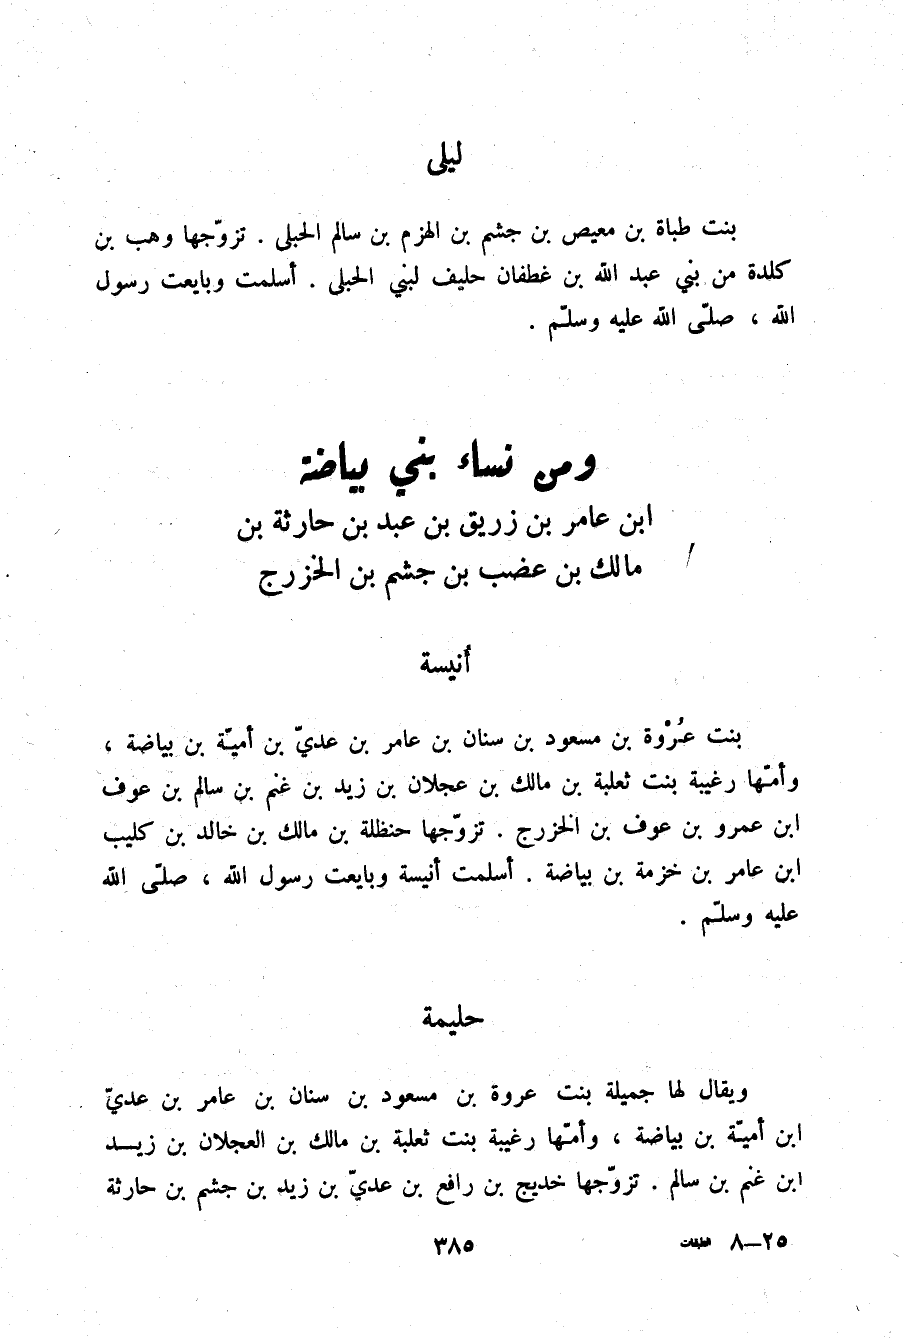 ليلى
بنت طباة بن معيص بن جشم بن الهزم بن سالم الحبلى . تزوّجها وهب بن
كلدة من بني عبد الله بن غطفان حليف لبني الحبلى . أسلمت وبايعت رسول
الله ، صلّى الله عليه وسلّم .
ومن نساء بني بياضة
ابن عامر بن زريق بن عبد بن حارثة بن
مالك بن عضب بن جشم بن الخزرج
أنيسة
بنت عُرْوة بن مسعود بن سنان بن عامر بن عديّ بن أميّة بن بياضة ،
وأمّها رغيبة بنت ثعلبة بن مالك بن عجلان بن زيد بن غنم بن سالم بن عوف
ابن عمرو بن عوف بن الخزرج . تزوّجها حنظلة بن مالك بن خالد بن كليب
ابن عامر بن خزمة بن بياضة . أسلمت أنيسة وبايعت رسول الله ، صلّى الله
عليه وسلّم .
حليمة
ويقال لها جميلة بنت عروة بن مسعود بن سنان بن عامر بن عديّ
ابن أميّة بن بياضة ، وأمّها رغيبة بنت ثعلبة بن مالك بن العجلان بن زيــد
ابن غنم بن سالم . تزوّجها خديج بن رافع بن عديّ بن زيد بن جشم بن حارثة
٢٥–٨ الطبقات
٣٨٥